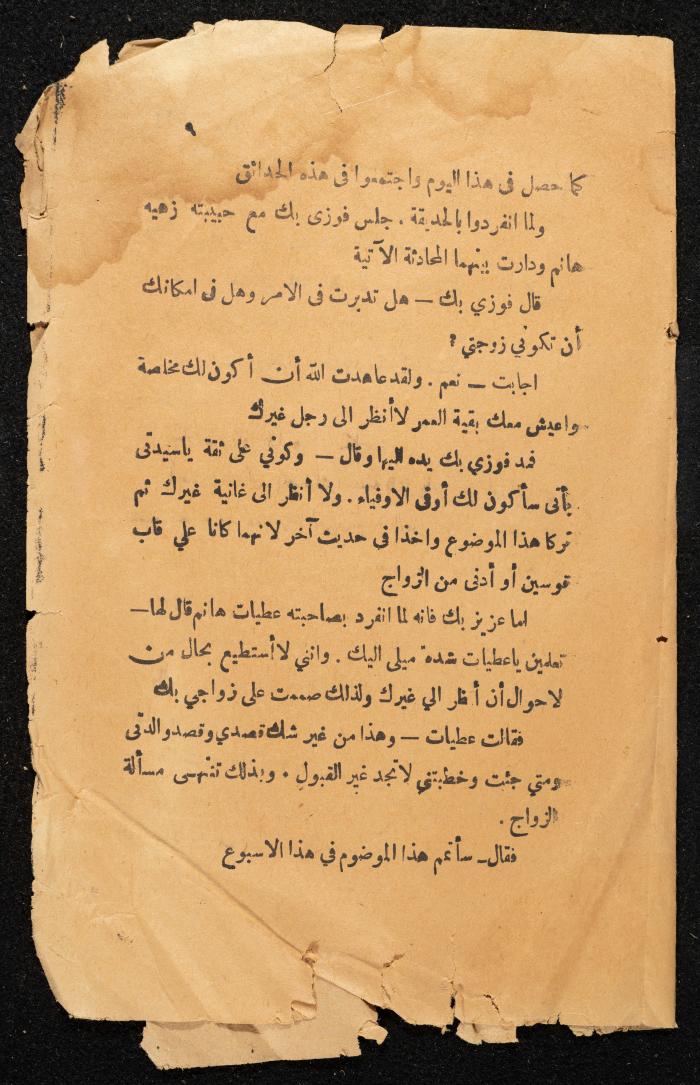 ٩
كما حصل فى هذا اليوم واجتمعوا فى هذه الحدائق
ولما انفردوا بالحديقة . جلس فوزى بك مع حبيبته زهيه
هانم ودارت بينهما المحادثة الآتية
قال فوزي بك — هل تدبرت فى الامر وهل فى امكانك
أن تكونى زوجتي ؟
اجابت — نعم . ولقد عاهدت الله أن أكون لك مخلصة
واعيش معك بقية العمر لا أنظر الى رجل غيرك
فمد فوزي بك يده اليها وقال — وكوني على ثقة ياسيدتى
بأنى سأكون لك أوفى الاوفياء . ولا أنظر الى غانية غيرك ثم
تركا هذا الموضوع واخذا في حديت آخر لانهما كانا علي قاب
قوسين أو أدنى من الزواج
اما عزيز بك فانه لما انفرد بصاحبته عطيات هانم قال لها —
تعلمين ياعطيات شدة ميلى اليك . وانني لا أستطيع بحال من
لاحوال أن أنظر الي غيرك ولذلك صممت على زواجي بك
فقالت عطيات — وهذا من غير شك قصدي وقصد والدتى
ومتي جئت وخطبتني لاتجد غير القبول . وبذلك تنتهى مسألة
الزواج .
فقال — سأتمم هذا الموضوم في هذا الاسبوع